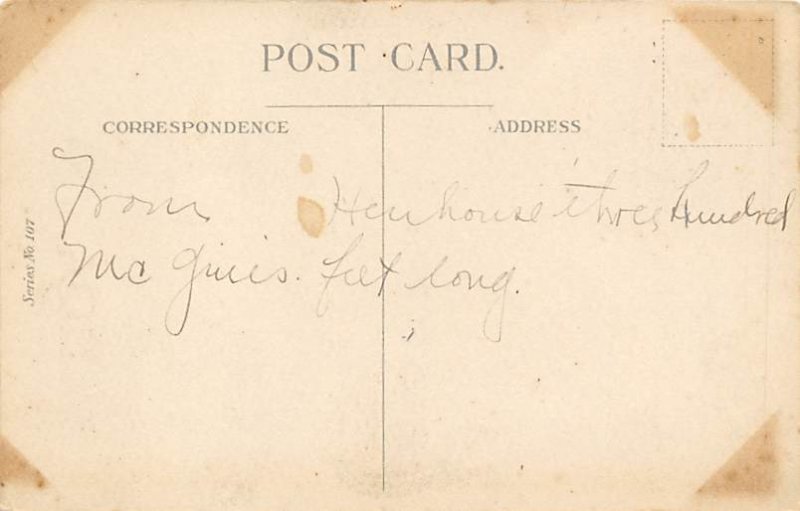 POST CARD.
CORRESPONDENCE
ADDRESS
From
Mc Ginis.
Hen house three Hundred
feet long.
Series No 107